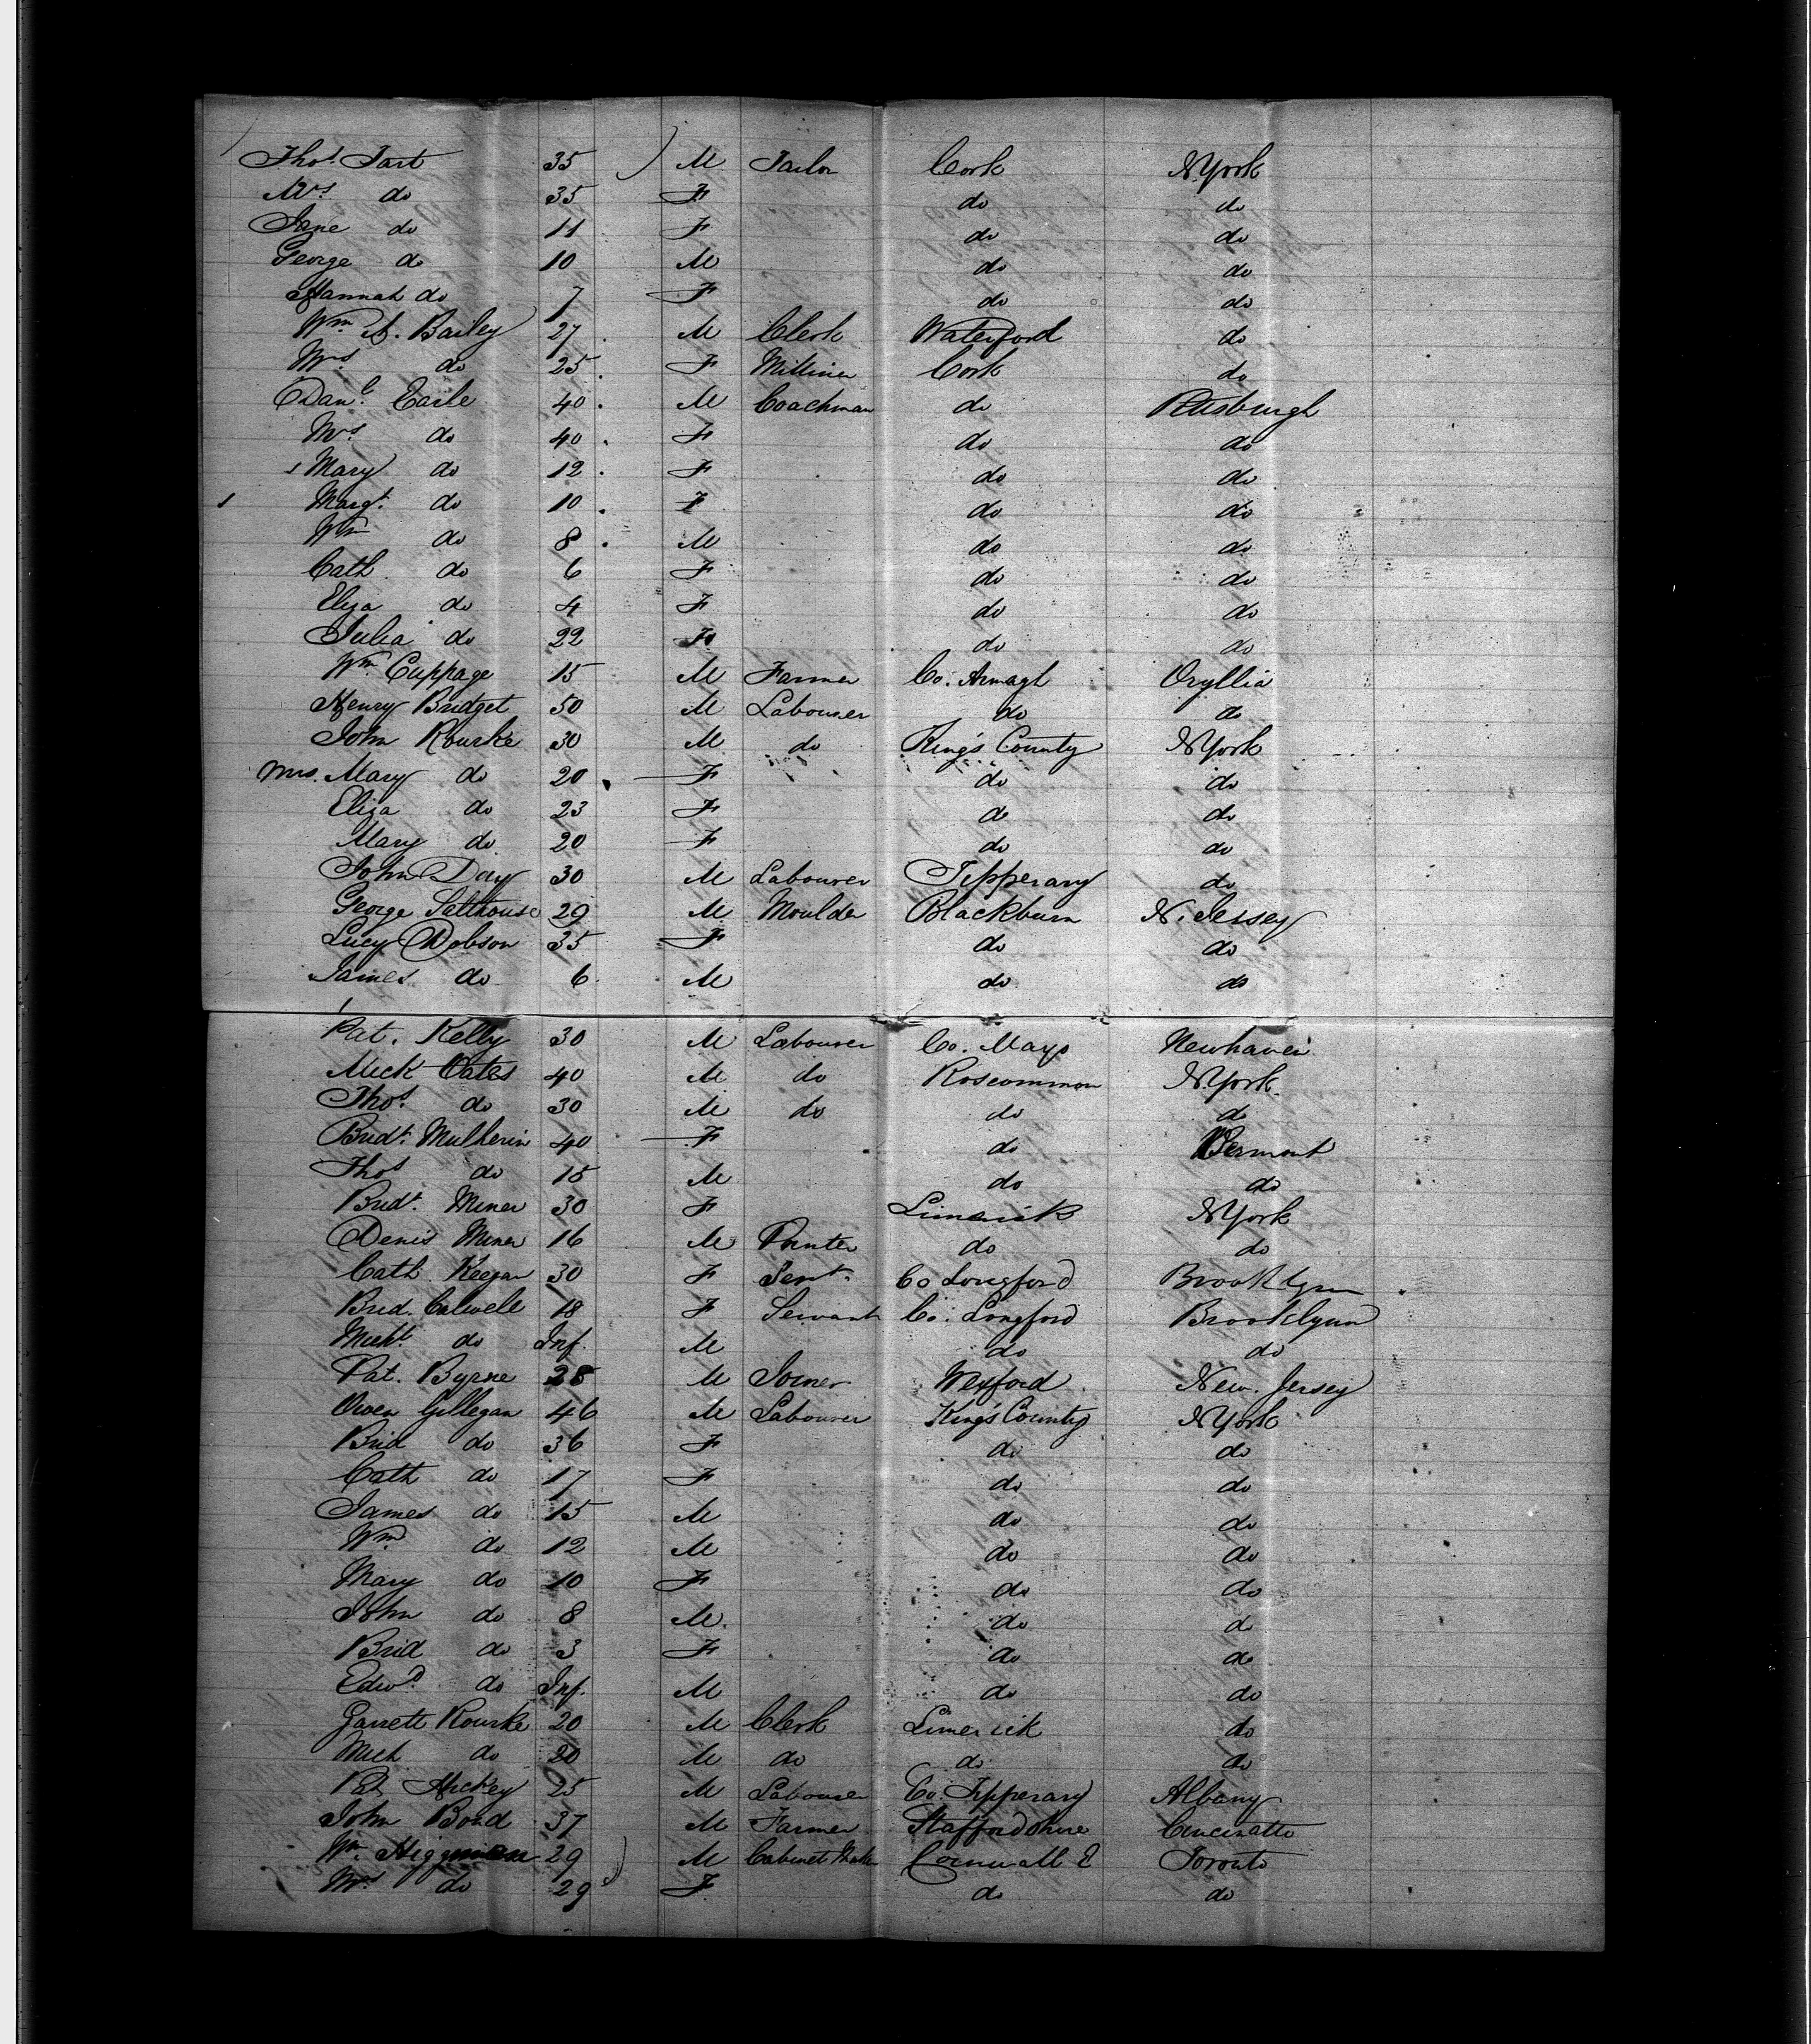 Thos. Tart 35 M Tailor Cork N.York
Mrs do 35 F do do
Jane do 11 F do do
George do 10 M do do
Hannah do 7 F do do
Wm A. Bailey 27 M Clerk Waterford do
Mrs do 25 F Milliner Cork do
Danl. Earle 40 M Coachman do Pittsburgh
Mrs do 40 F do do
Mary do 12 F do do
Margt. do 10 F do do
Wm do 8 M do do
Cath do 6 F do do
Eliza do 4 F do do
Julia do 22 F do do
Wm Cuppage 15 M Farmer Co. Armagh Oryllia
Henry Bridget 50 M Labourer do do
John Rourke 30 M do King's County N York
Mrs. Mary do 20 F do do
Eliza do 23 F do do
Mary do 20 F do do
John Day 30 M Labourer Tipperary do
George Salthouse 29 M Moulder Blackburn N. Jersey
Lucy Dobson 35 F do do
James do 6 M do do
Pat. Kelly 30 M Labourer Co. Mayo Newhaven
Mick Oates 40 M do Roscommon N.York
Thos. do 30 M do do do
Bridt. Mulherin 40 F do Vermont
Thos do 15 M do do
Bridt. Miner 30 F Limerick N York
Denis Miner 16 M Printer do do
Cath Keegan 30 F Servt. Co Longford Brooklyn
Brid. Calwell 18 F Servant Co. Longford Brooklynn
Michl. do Inf. M do do
Pat. Byrne 28 M Joiner Wexford New. Jersey
Owen Gillegan 46 M Labourer King's County N York
Brid do 36 F do do
Cath do 17 F do do
James do 15 M do do
Wm do 12 M do do
Mary do 10 F do do
John do 8 M. do do
Brid do 3 F do do
Edwd. do Inf. M do do
Garrett Rourke 20 M Clerk Limerick do
Mich do 20 M do do do
Pat Hickey 25 M Labourer Co. Tipperary Albany
John Bond 37 M Farmer Staffordshire Cincinatti
Wm. 29 M Cabinet Maker Cornwall E Toronto
Mrs do 29 F do do